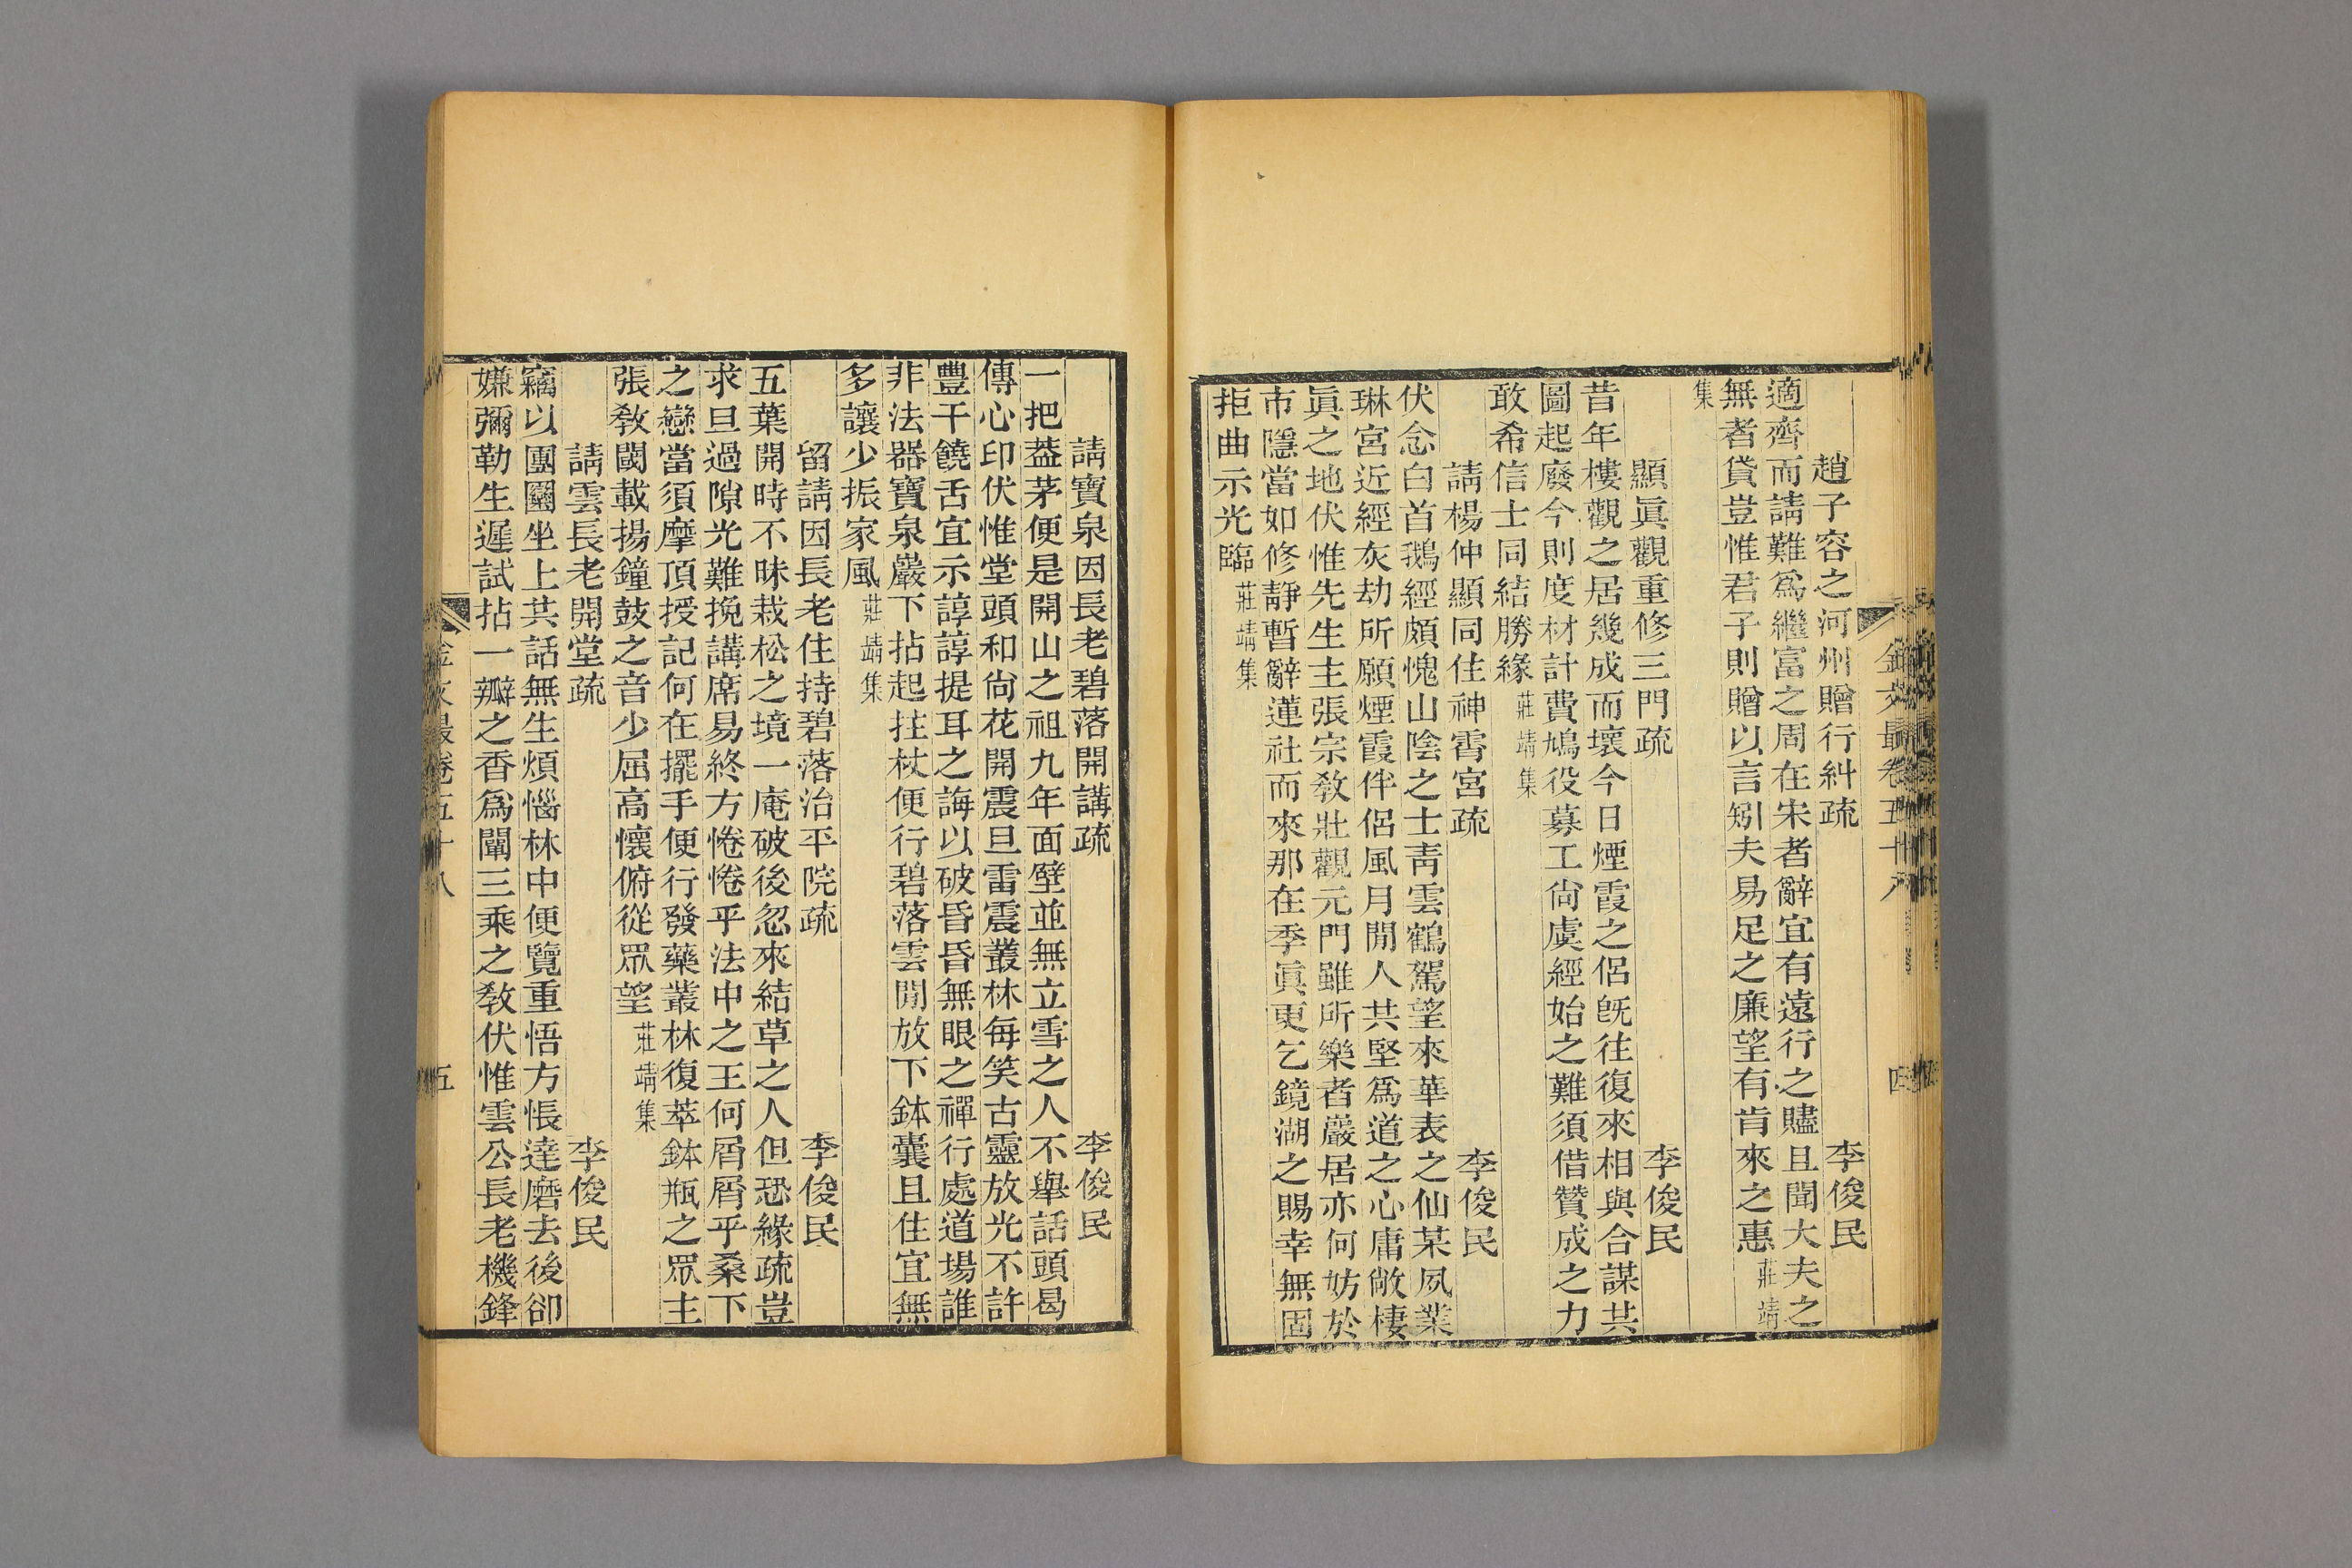 金文最卷五十八 四
趙子容之河州贈行糾疏 李俊民
適齊而請難爲繼富之周在宋者辭宜有遠行之贐且聞大夫之
無者貸豈惟君子則贈以言矧夫易足之廉望有肯來之惠莊靖
集
顯眞觀重修三門疏 李俊民
昔年樓觀之居幾成而壞今日煙霞之侶旣往復來相與合謀共
圖起廢今則度材計費鳩役募工尙虞經始之難須借贊成之力
敢希信士同結勝緣莊靖集
請楊仲顯同住神霄宮疏 李俊民
伏念白首鵝經頗愧山陰之士靑雲鶴駕望來華表之仙某夙業
琳宮近經灰劫所願煙霞伴侶風月閒人共堅爲道之心庸敞棲
眞之地伏惟先生主張宗敎壯觀元門雖所樂者巖居亦何妨於
市隱當如修靜暫辭蓮社而來那在季眞更乞鏡湖之賜幸無固
拒曲示光臨莊靖集
請寶泉因長老碧落開講疏 李俊民
一把葢茅便是開山之祖九年面壁並無立雪之人不舉話頭曷
傳心印伏惟堂頭和尙花開震旦雷震叢林每笑古靈放光不許
豐干饒舌宜示諄諄提耳之誨以破昏昏無眼之禪行處道場誰
非法器寶泉巖下拈起拄杖便行碧落雲閒放下鉢囊且住宜無
多讓少振家風莊靖集
留請因長老住持碧落治平院疏 李俊民
五葉開時不昧栽松之境一庵破後忽來結草之人但恐緣疏豈
求旦過隙光難挽講席易終方惓惓乎法中之王何屑屑乎桑下
之戀當須摩頂授記何在擺手便行發藥叢林復萃鉢瓶之眾主
張敎閫載揚鐘鼓之音少屈高懷俯從眾望莊靖集
請雲長老開堂疏 李俊民
竊以團圞坐上共話無生煩惱林中便覽重悟方悵達磨去後卻
嫌彌勒生遲試拈一瓣之香爲闡三乘之敎伏惟雲公長老機鋒
金文最卷五十八 五